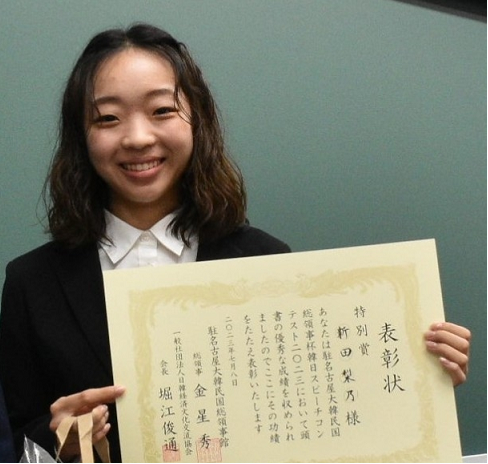 表彰状
特別賞
新田 梨乃 様
あなたは駐名古屋大韓民国
総領事杯韓日スピーチコン
テスト二〇二三において頭
書の優秀な成績を収められ
ましたのでここにその功績
をたたえ表彰いたします
二〇二三年七月八日
駐名古屋大韓民国総領事館
総領事 金星秀
一般社団法人日韓経済文化交流協会
会長 堀江俊通